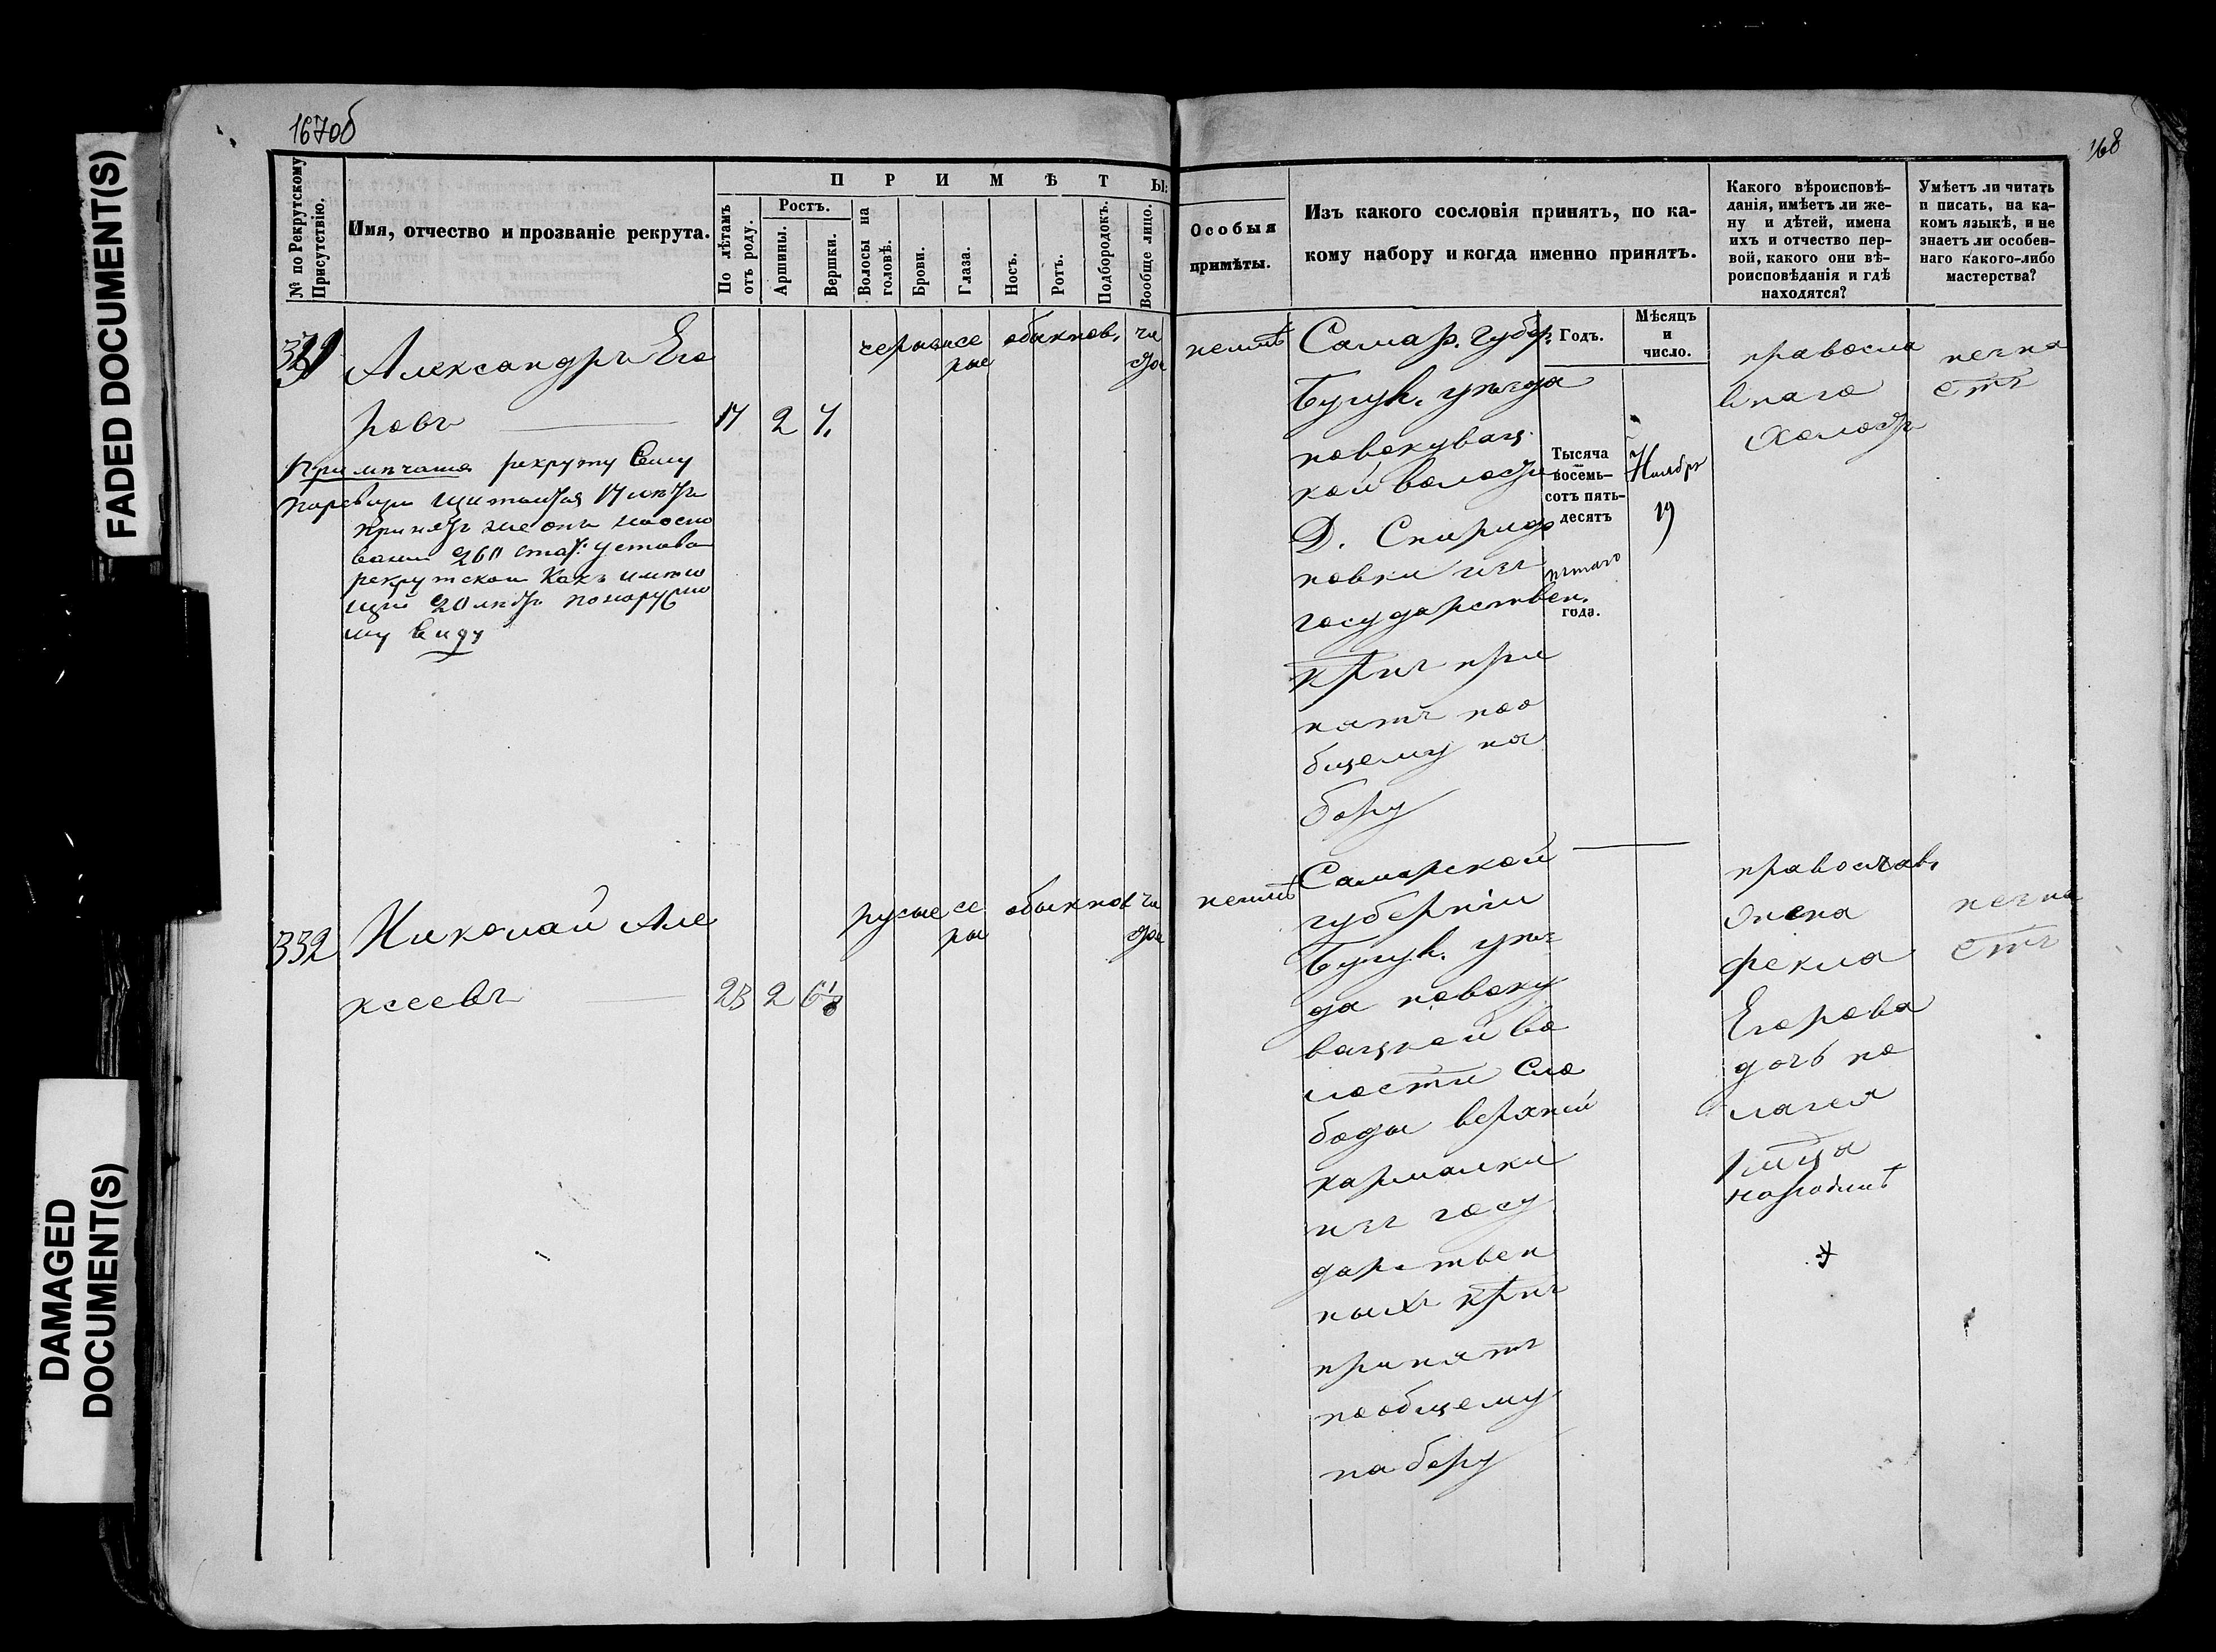 FADED DOCUMENT(S)
DAMAGED
DOCUMENT(S)
167об
168
№ по Рекрутскому
Присутствію.
Имя, отчество и прозваніе рекрута.
П Р И М Ѣ Т Ы:
По лѣтамъ
отъ роду.
Ростъ.
Аршины.
Вершки.
Волосы на
головѣ.
Брови.
Глаза.
Носъ.
Ротъ.
Подбородокъ.
Вообще лицо.
Особыя
примѣты.
Изъ какого сословія принятъ, по ка-
кому набору и когда именно принятъ.
Какого вѣроисповѣ-
данія, имѣетъ ли же-
ну и дѣтей, имена
ихъ и отчество пер-
вой, какого они вѣ-
роисповѣданія и гдѣ
находятся?
Умѣетъ ли читать
и писать, на ка-
комъ языкѣ, и не
знаетъ ли особен-
наго какого-либо
мастерства?
Александръ Его
ровъ
17 2 4
се
рые
обыкнов.
чи
стое
рекруту сему
17 лѣтъ
принятъ же онъ на осно
ваніи 260 стат: устава
рекрутскаго какъ имѣю
щій 20 лѣтъ по наружно
му виду
неимѣ
Самар. губер.
Бугул. уѣзда
новокуващ
кой волости
Д. Спиридо
новки изъ
государствен.
крнъ при
нятъ поо
бщему на
бору
Годъ.
Мѣсяцъ
и
число.
Тысяча
восемь-
сотъ пять-
десятъ
пятаго
года.
Ноября
19
правосла
внаго
холостъ
незна
етъ
332
Николай Але
ксеевъ
23 2 6⅛
русые
се
рые
обыкнов
чи
стое
неимѣ
Самарской
губерніи
Бугул. уѣз
да новоку
ващкой во
лости Сло
боды верхней
кармалки
изъ госу
дарствен
ныхъ крнъ
принятъ
пообщему
набору
православ.
жена
фекла
Егорова
дочь пе
лагея
1 года
на родинѣ
незна
етъ